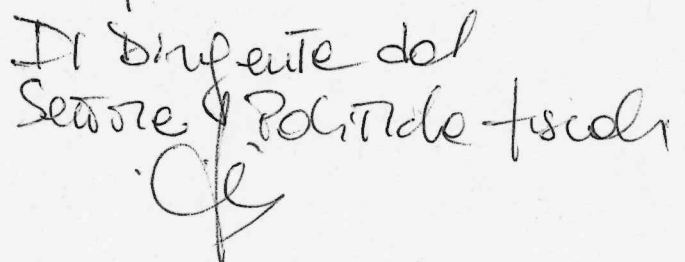 Il Dirigente del
Settore Politiche fiscali